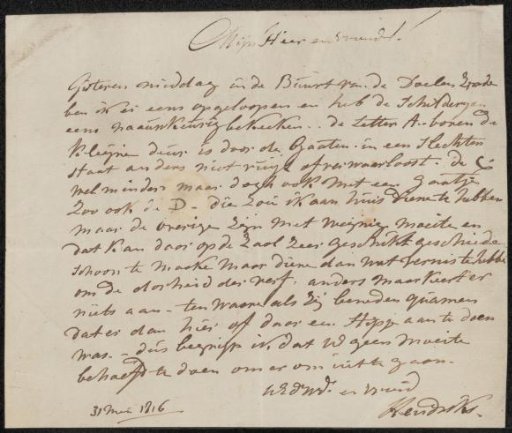 Mijn Heer en vriend.
Gisteren middag in de Buurt van de Doelen zynde
ben ik er eens opgeloopen en heb de Schilderyen
eens naauwkeurig bekeeken.. de Letter A. boven de
kleijne deur is door de Gaaten in een Slechten
Staat anders niet vuijl of verwaarloost. de C
wel minder maar dogh ook met een gaatje
zoo ook de D - die zou ik aan huis dienen te hebben
maar de overige Zyn met weijnig moeite en
dat kan daar op de Zaal zeer geschikt geschieden
schoon te maake maar diene dan wat vernis te hebben
om de dorheid der verf. anders mankeert er
niets aan - ten waare als zij beneden quamen
dat er dan hier of daar een Stipje aan te doen
was. - dus begrijp ik dat U geen moeite
behoefd te doen om er om uit te gaan.
UEd. en vriend
31 Mei 1816 Hendriks.